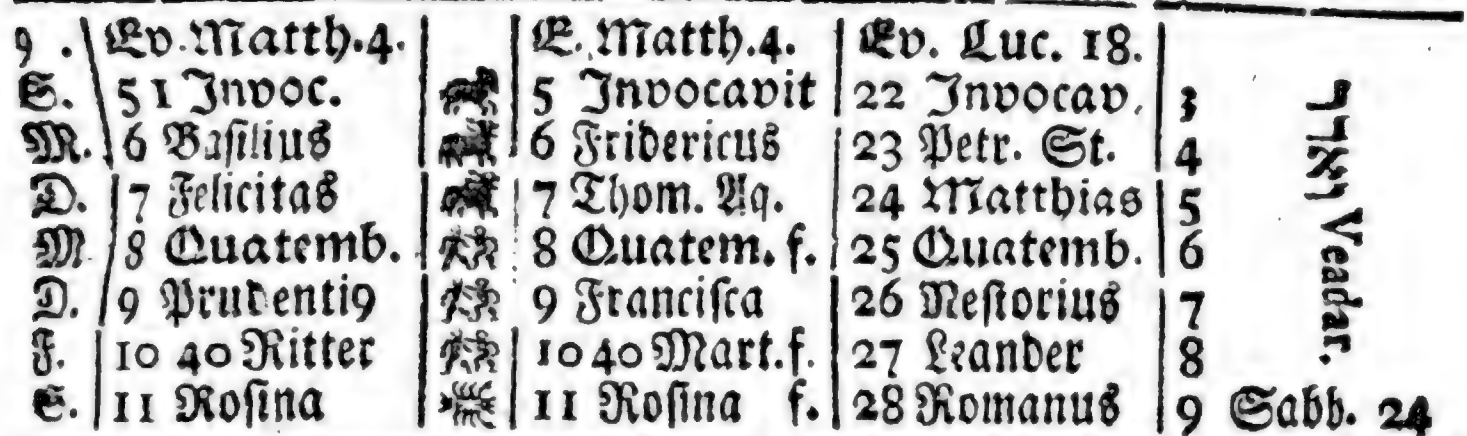 9. Ev. Matth. 4. E. Matth. 4. Ev. Luc. 18.
S. 5 1 Invoc. 5 Invocavit 22 Invocav. 3
M. 6 Baſilius 6 Fridericus 23 Petr. St. 4
D. 7 Felicitas 7 Thom. Aq. 24 Matthias 5
M. 8 Quatemb. 8 Quatem. f. 25 Quatemb. 6
D. 9 Prudenti9 9 Franciſca 26 Neſtorius 7
F. 10 40 Ritter 10 40 Mart. f. 27 Leander 8
S. 11 Roſina 11 Roſina f. 28 Romanus 9 Sabb. 24
ואדר Veadar.